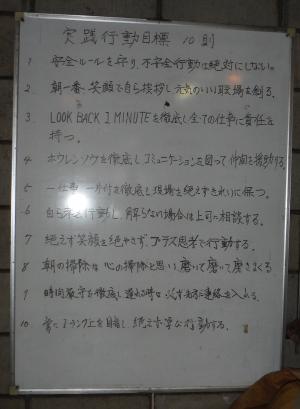 実践行動目標 10則
1 安全ルールを守り、不安全行動は絶対にしない。
2 朝一番、笑顔で自ら挨拶し元気のいい職場を創る。
3 LOOK BACK 1 MINUTEを徹底し全ての仕事に責任を
持つ。
4 ホウレンソウを徹底しコミュニケーションを図って仲間を援助する。
5 一仕事一片付を徹底し現場を絶えずきれいに保つ。
6 自ら考え行動し、解らない場合は上司に相談する。
7 絶えず笑顔を絶やさず、プラス思考で行動する。
8 朝の掃除は心の掃除と思い、磨いて磨いて磨きまくる
9 時間厳守を徹底し遅れる時は必ず先方に連絡を入れる。
10 常に1ランク上を目指し、絶えず行動する。